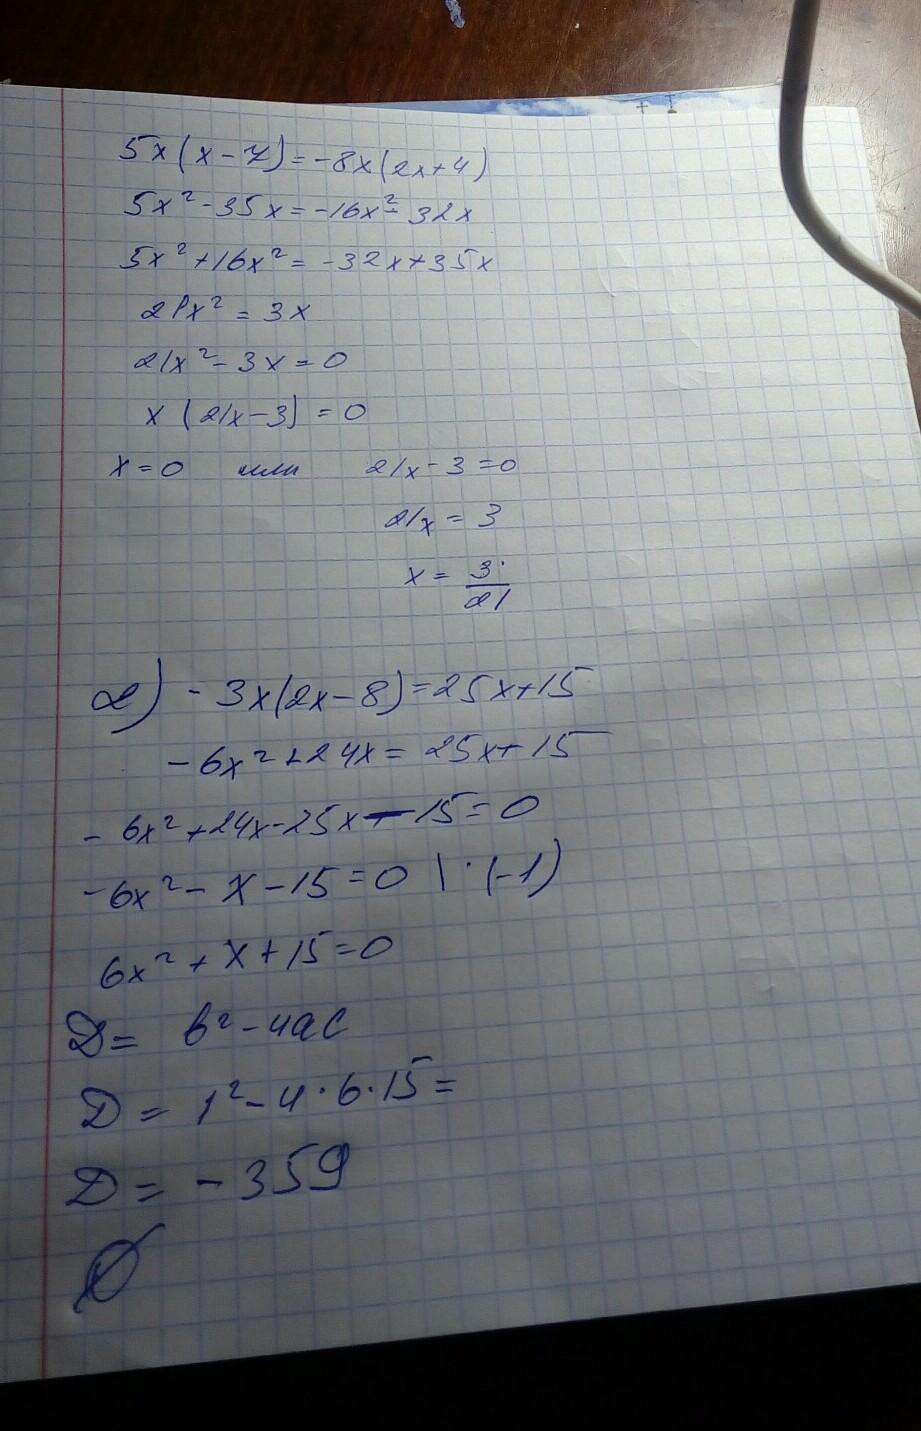 5x(x-7)=-8x(2x+4)
5x²-35x=-16x²-32x
5x²+16x²=-32x+35x
21x²=3x
21x²-3x=0
x(21x-3)=0
x=0 или 21x-3=0
21x=3
x=3/21
2) -3x(2x-8)=25x+15
-6x²+24x=25x+15
-6x²+24x-25x-15=0
-6x²-x-15=0 |·(-1)
6x²+x+15=0
D=b²-4ac
D=1²-4·6·15=
D=-359
Ø